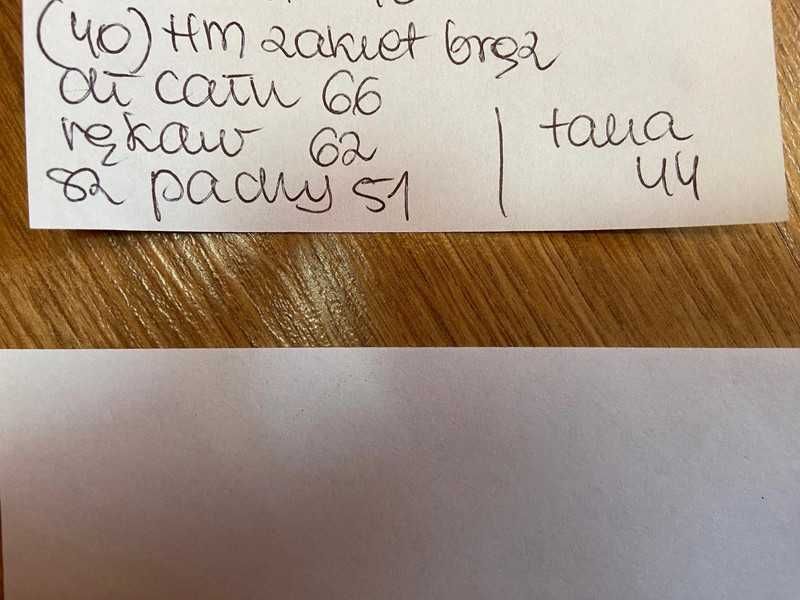 (40) HM żakiet brąz
dł całk 66
rękaw 62
sz pachy 51
talia
44